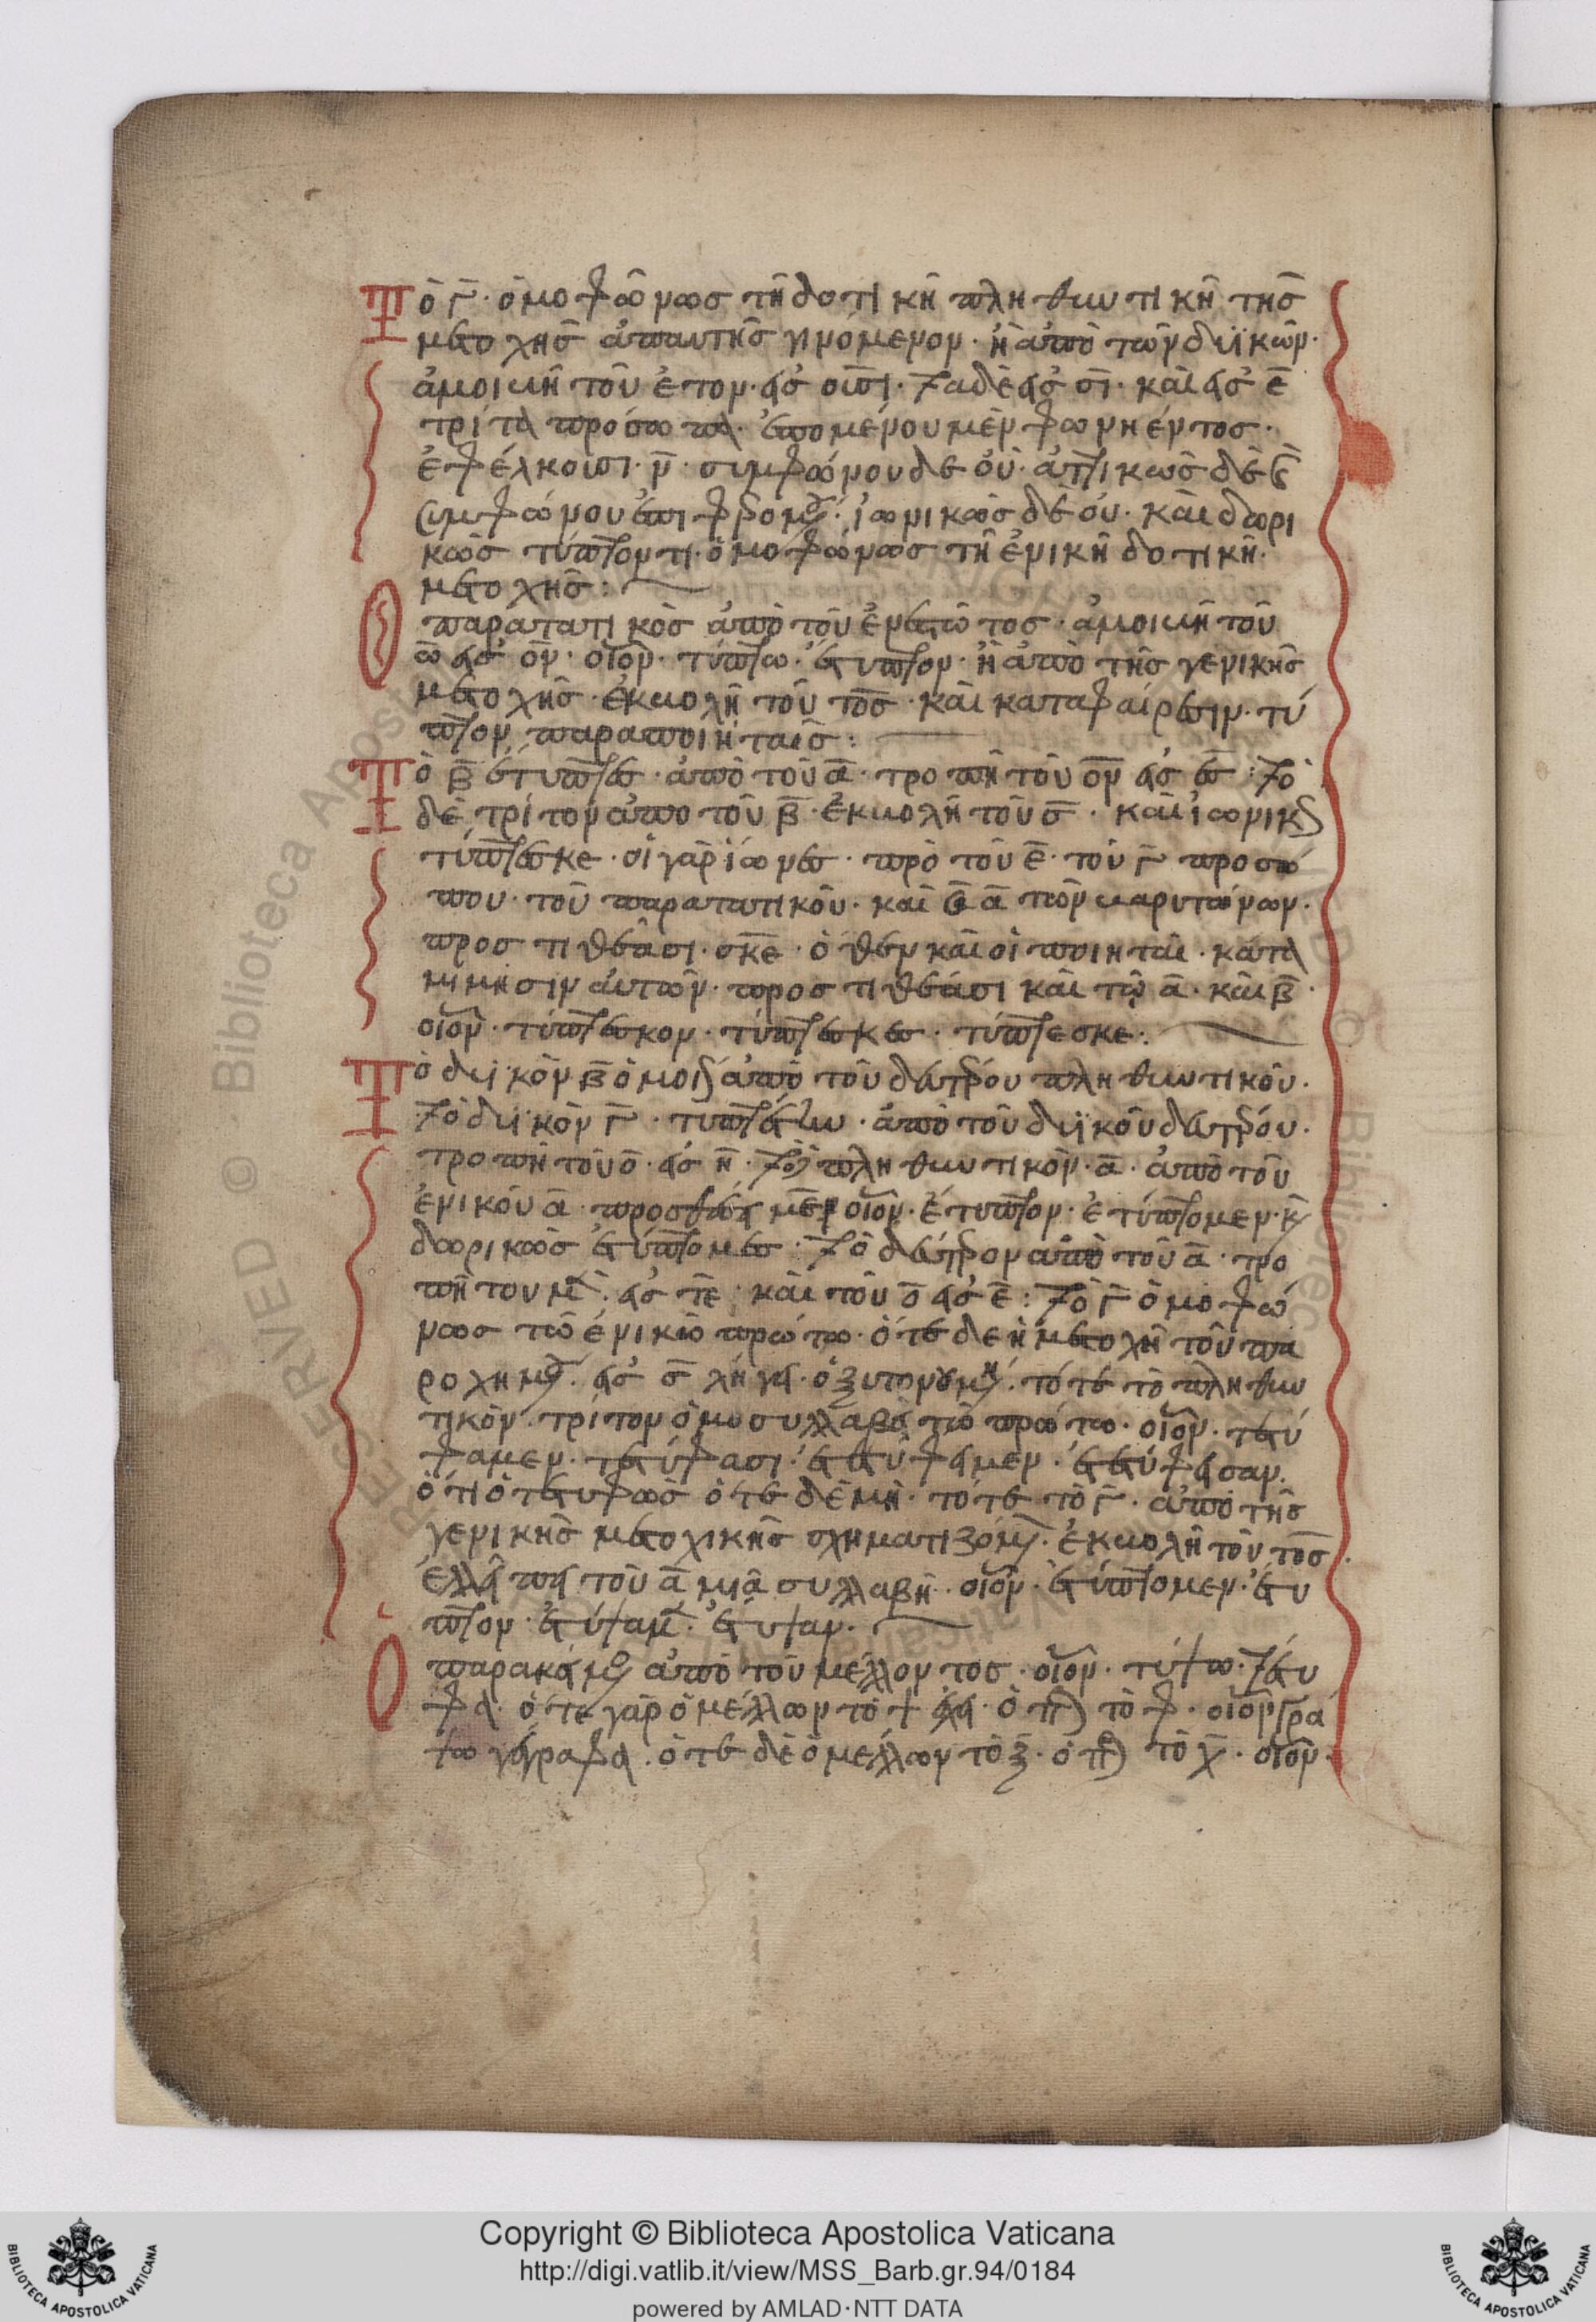 Τὸ γ̄· ὁμοφώνως τῆ δοτικῆ πληθυντικῆ τῆς
μετοχῆς ἀπαυτῆς γινόμενον· ἢ ἀπὸ τῶν δυϊκῶν·
ἀμοιβῆ τοῦ ἐτον· εἰς οῡσι· τὰ δὲ εἰς σῑ· καὶ εἰς ε̄
τρίτα πρόσωπα· ἑπομένου μὲν φωνηέντος·
ἐφέλκουσι· ν̄· συμφώνου δὲ οὐ· ἀττικῶς δὲ καὶ
συμφώνου ἐπιφερομένου· ἰωνικῶς δὲ οὐ· καὶ δωρι
κῶς τύπτοντι· ὁμοφώνως τῆ ἑνικῆ δοτικῆ·
μετοχῆς:
Ὁ παρατατικὸς ἀπὸ τοῦ ἐνεστῶτος· ἀμοιβῆ τοῦ
ω̄ εἰς ον̄· οἷον· τύπτω· ἔτυπτον· ἢ ἀπὸ τῆς γενικῆς
μετοχῆς· ἐκβολῆ τοῦ το̄ς· καὶ καταφαίρεσιν· τύ
πτον παραποιηταῖς:
Τὸ β̄ ἔτυπτες· ἀπὸ τοῦ ᾱ· τροπῆ τοῦ ον̄ εἰς ες̄: τὸ
δὲ τρίτον ἀπο τοῦ β̄· ἐκβολῆ τοῦ σ̄· καὶ ἰωνικῶς
τύπτεσκε· οἱ γὰρ ἴωνες· πρὸ τοῦ ε̄· τοῦ γ̄ προσώ
που· τοῦ παρατατικοῦ· καὶ ᾱ τῶν βαρυτόνων·
προστιθέασι· σκ̄ε· ὅθεν καὶ οἱ ποιηταὶ· κατὰ
μίμησιν αὐτῶν· προστιθέασι καὶ τῶ ᾱ· καὶ β̄·
οἷον· τύπτεσκον· τύπτεσκες· τύπτεσκε:
Τὸ δυϊκὸν β̄ ὁμοίως ἀπὸ τοῦ δευτέρου πληθυντικοῦ·
τὸ δυϊκὸν γ̄· τυπτέτην· ἀπὸ τοῦ δυϊκοῦ δευτέρου·
τροπῆ τοῦ ο̄· εἰς η̄· τὸ πληθυντικὸν· ᾱ· ἀπὸ τοῦ
ἑνικοῦ ᾱ· προσθέσει με̄ οἷον· ἔτυπτον· ἐτύπτομεν· καὶ
δωρικῶς ἐτύπτομες· τὸ δεύτερον ἀπὸ τοῦ ᾱ· τρο
πῆ του μεν· εἰς τε̄· καὶ τοῦ ο̄ εἰς ε̄: τὸ γ̄ ὁμοφώ
νως τῶ ἑνικῶ πρώτω· ὅτε δε ἡ μετοχὴ τοῦ πα
ροχημένου· εἰς σ̄ λήγει· ὀξυτονουμένη· τότε τὸ πληθυν
τικὸν· τρίτον ὁμοσυλλαβεῖ τῶ πρώτω· οἷον· τετύ
φαμεν· τετύφασι· ἐτετύφειμεν· ἐτετύφεισαν·
ὅτι ὁ τετυφὼς ὅτε δὲ μὴ· τότε τὸ γ̄· ἀπὸ τῆς
γενικῆς μετοχικῆς σχηματιζόμενον· ἐκβολῆ τοῦ το̄ς·
ἐλλείπει τοῦ ᾱ μιᾶ συλλαβῆ· οἷον· ἐτύπτομεν· ἔτυ
πτον· ἐτύψαμεν· ἔτυψαν·
Ὁ παρακείμενος ἀπὸ τοῦ μέλλοντος· οἷον· τύψω· τέτυ
φα· ὅτε γὰρ ὁ μέλλων τὸ ψ ἔχει· ὁ παρακείμενος τὸ φ· οἷον γρά
ψω γέγραφα· ὅτε δὲ ὁ μέλλων τὸ ξ̄· ὁ παρακείμενος τὸ χ̄· οἷον·
Copyright © Biblioteca Apostolica Vaticana
http://digi.vatlib.it/view/MSS_Barb.gr.94/0184
powered by AMLAD·NTT DATA